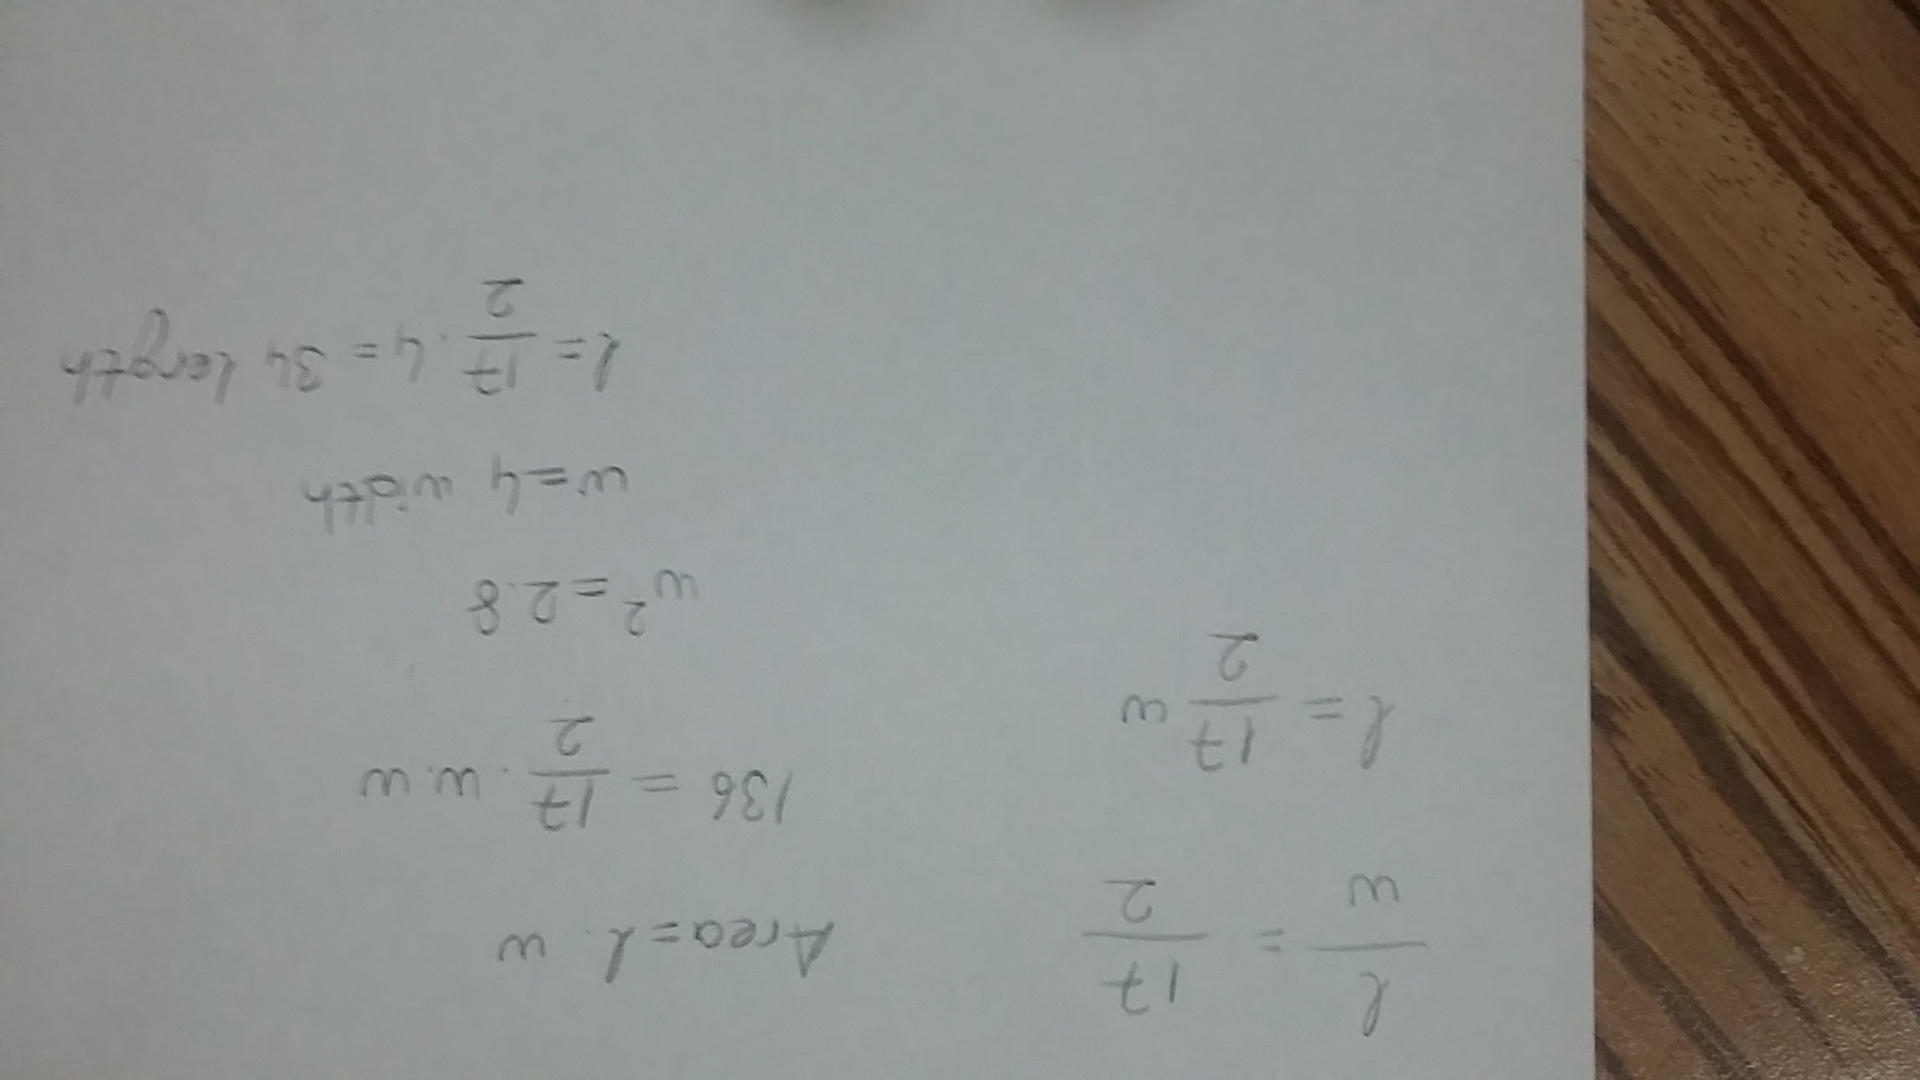 l/w = 17/2
l = 17/2 w
Area = l. w
136 = 17/2 . w. w
w² = 2.8
w = 4 width
l = 17/2 . 4 = 34 length